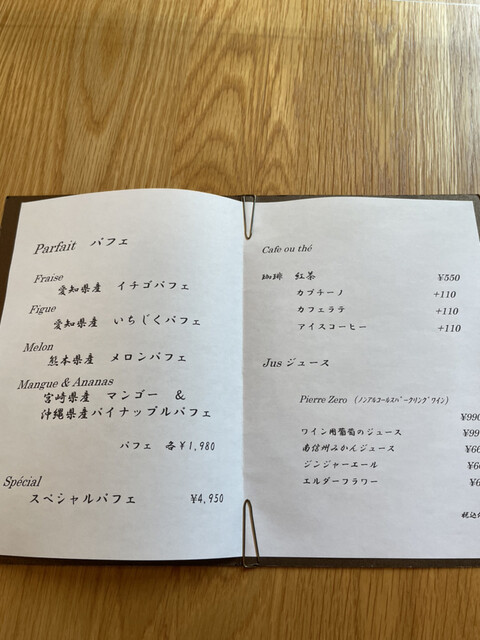 Parfait パフェ
Fraise
愛知県産 イチゴパフェ
Figue
愛知県産 いちじくパフェ
Melon
熊本県産 メロンパフェ
Mangue & Ananas
宮崎県産 マンゴー &
沖縄県産パイナップルパフェ
パフェ 各¥1,980
Spécial
スペシャルパフェ ¥4,950
Cafe ou thé
珈琲 紅茶 ¥550
カプチーノ +110
カフェラテ +110
アイスコーヒー +110
Jus ジュース
Pierre Zero (ノンアルコールスパークリングワイン)
¥990
ワイン用葡萄のジュース ¥99
南信州みかんジュース ¥66
ジンジャーエール ¥6
エルダーフラワー ¥6
税込